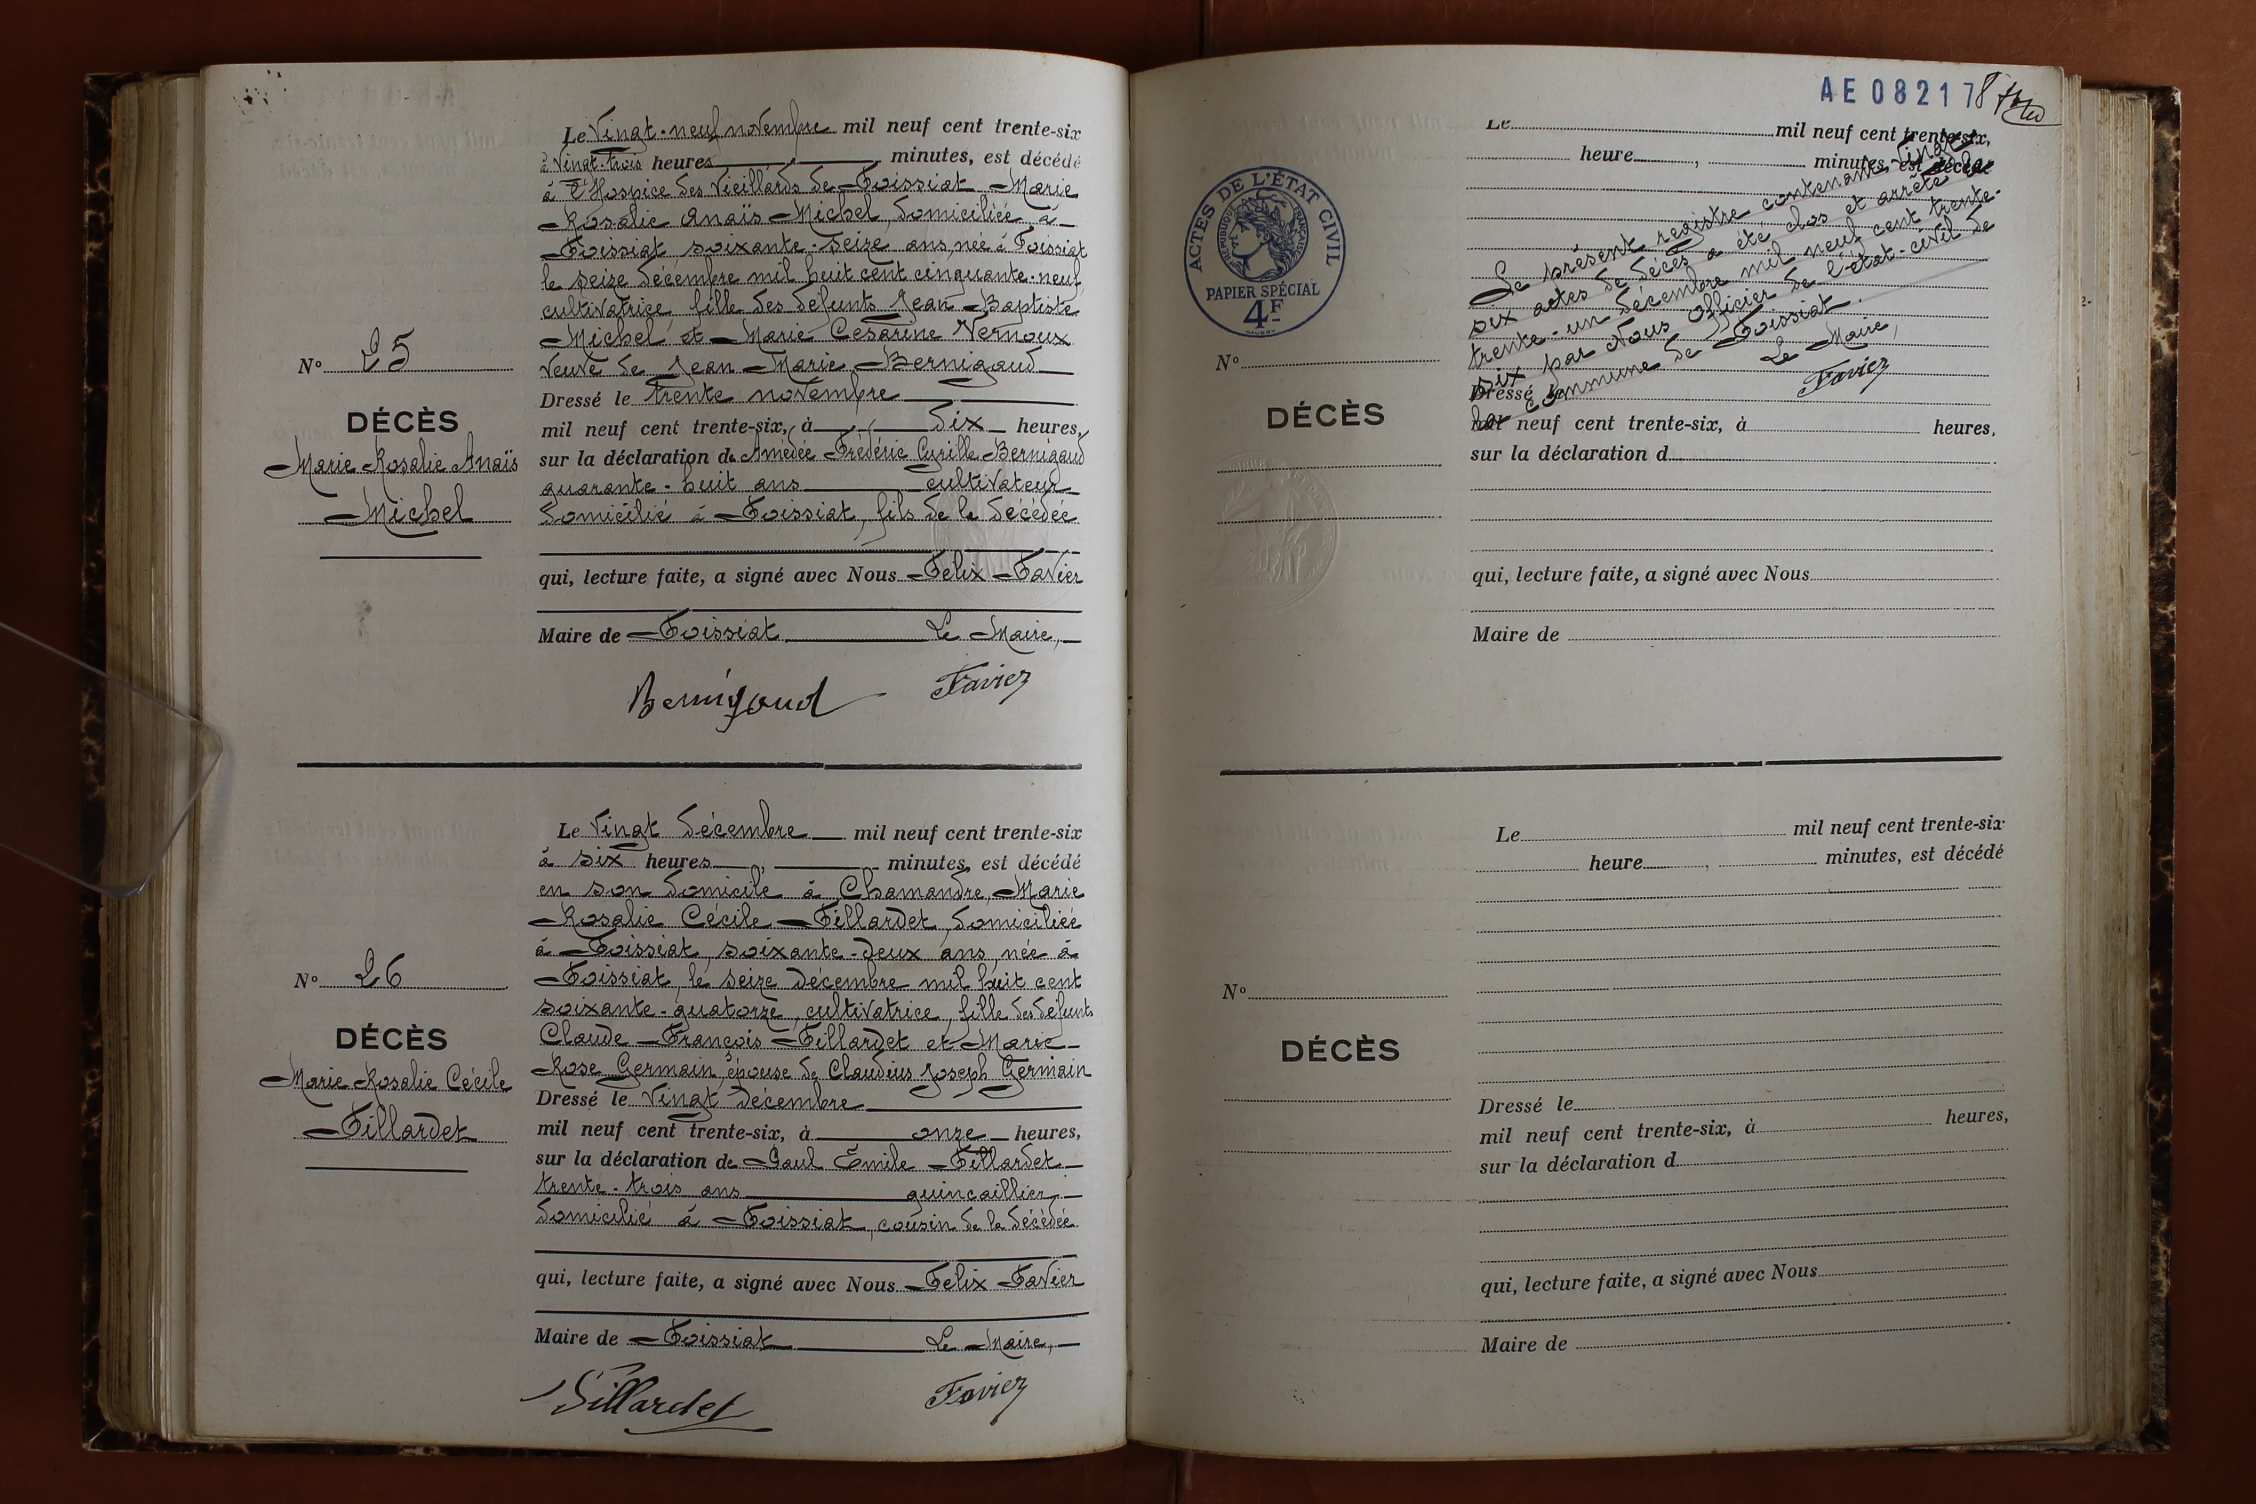 Le Vingt-neuf novembre mil neuf cent trente-six
à Vingt-trois heures, minutes, est décédé
à l'Hospice des Vieillards de Foissiat Marie
Rosalie Anaïs Michel, domiciliée à
Foissiat soixante-seize ans, née à Foissiat
le seize décembre mil huit cent cinquante-neuf,
cultivatrice, fille des défunts Jean Baptiste
Michel et Marie Césarine Vernoux
Veuve de Jean Marie Bernigaud
N° 25
DÉCÈS
Marie Rosalie Anaïs
Michel
Dressé le trente novembre
mil neuf cent trente-six, à dix heures,
sur la déclaration de Amédée Frédéric Cyrille Bernigaud
quarante-huit ans cultivateur
domicilié à Foissiat, fils de la décédée
qui, lecture faite, a signé avec Nous Felix Favier
Maire de Foissiat Le Maire,
Bernigaud Favier
Le Vingt décembre mil neuf cent trente-six
à six heures, minutes, est décédé
en son domicile à Chamandre, Marie
Rosalie Cécile Fillardet, domiciliée
à Foissiat, soixante-deux ans, née à
Foissiat, le seize décembre mil huit cent
soixante-quatorze, cultivatrice, fille des défunts
Claude François Fillardet et Marie
Rose Germain, épouse de Claudius Joseph Germain
N° 26
DÉCÈS
Marie Rosalie Cécile
Fillardet
Dressé le Vingt décembre
mil neuf cent trente-six, à onze heures,
sur la déclaration de Paul Émile Fillardet
trente-trois ans quincaillier
domicilié à Foissiat, cousin de la décédée
qui, lecture faite, a signé avec Nous Felix Favier
Maire de Foissiat Le Maire,
Fillardet Favier
AE 082178
ACTES DE L'ÉTAT CIVIL
RÉPUBLIQUE FRANÇAISE
PAPIER SPÉCIAL
4F
Le mil neuf cent trente-six,
heure, minutes, est décédé
Le présent registre contenant Vingt-
six actes de décès a été clos et arrêté le
trente-un décembre mil neuf cent trente-
six par Nous Officier de l'état-civil de
la commune de Foissiat.
Le Maire,
Favier
N°
DÉCÈS
Dressé le
mil neuf cent trente-six, à heures,
sur la déclaration d
qui, lecture faite, a signé avec Nous
Maire de
Le mil neuf cent trente-six
heure, minutes, est décédé
N°
DÉCÈS
Dressé le
mil neuf cent trente-six, à heures,
sur la déclaration d
qui, lecture faite, a signé avec Nous
Maire de